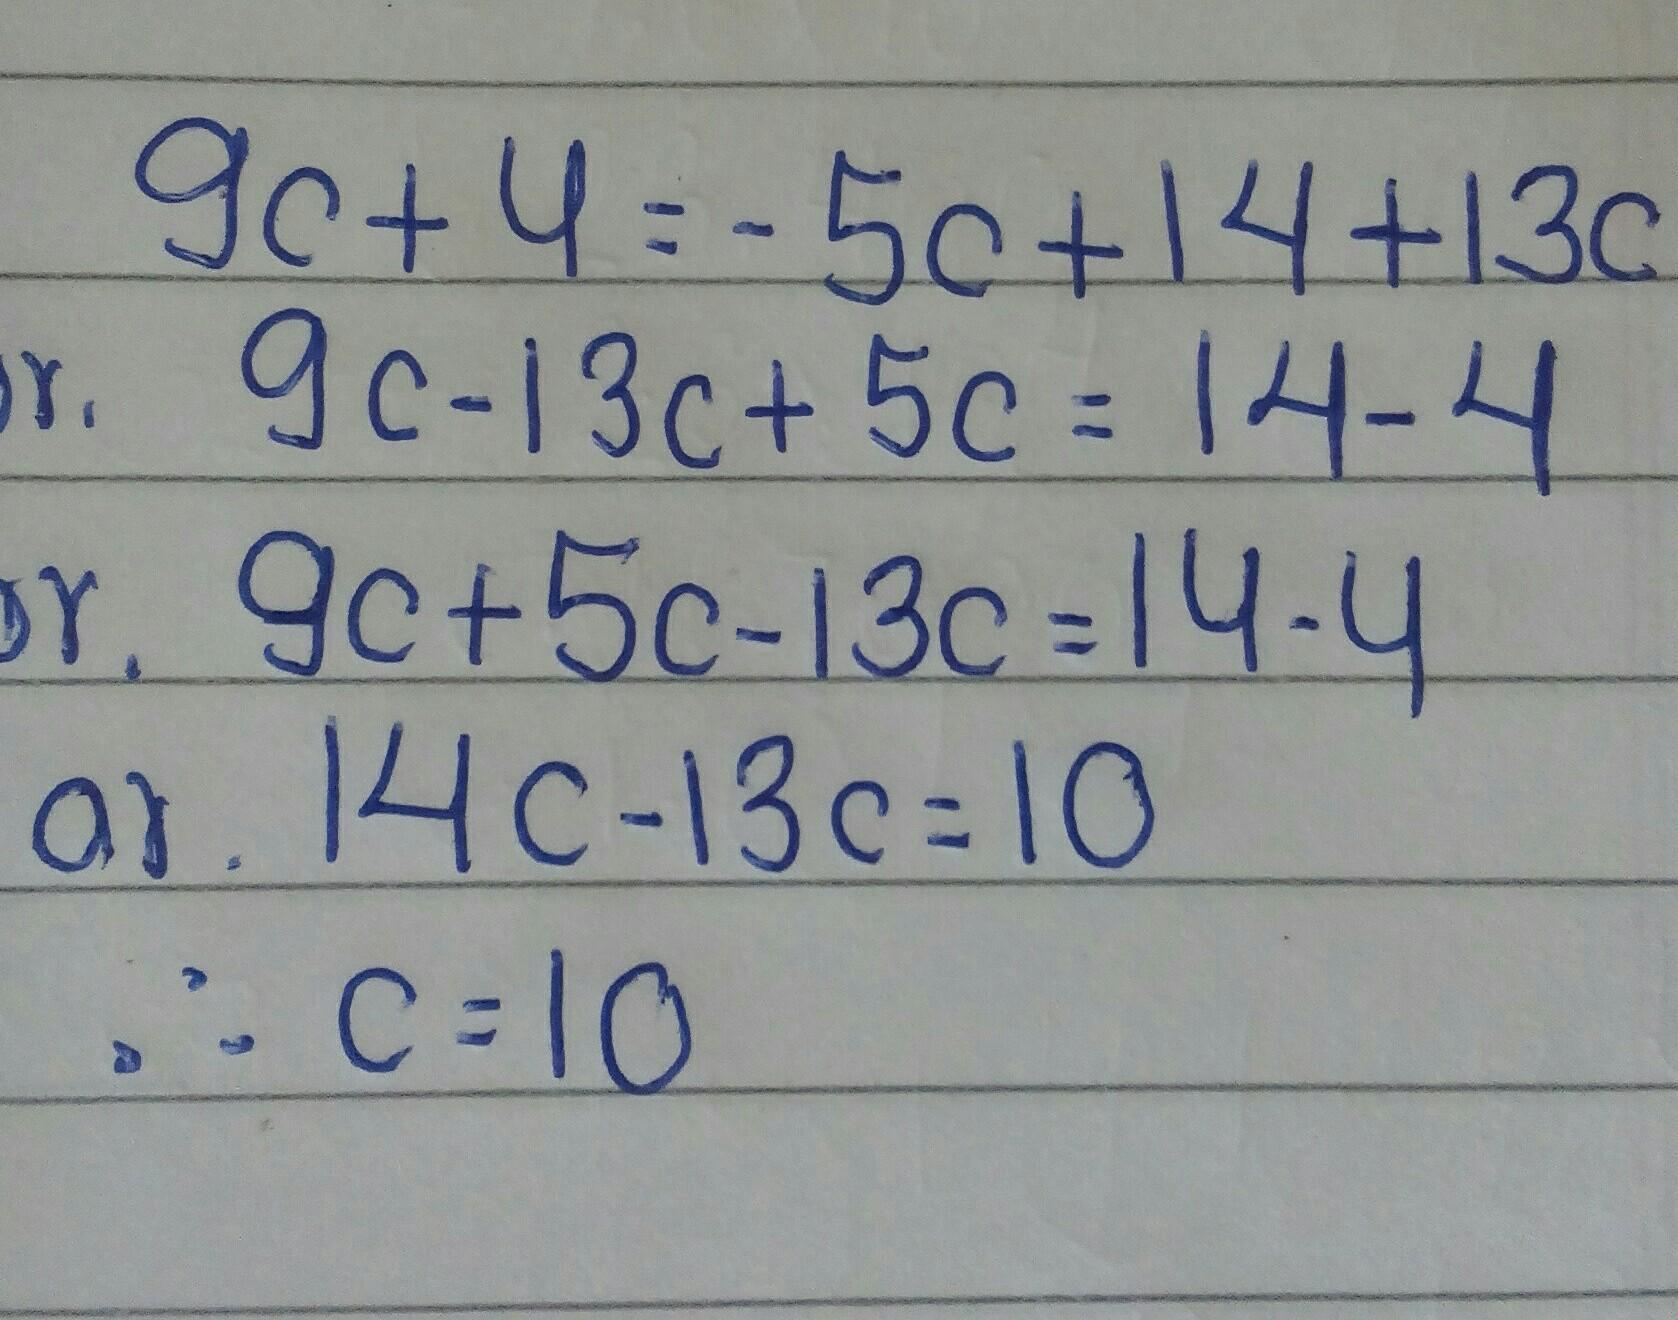 9c+4=-5c+14+13c
or. 9c-13c+5c=14-4
or. 9c+5c-13c=14-4
or. 14c-13c=10
∴ c=10